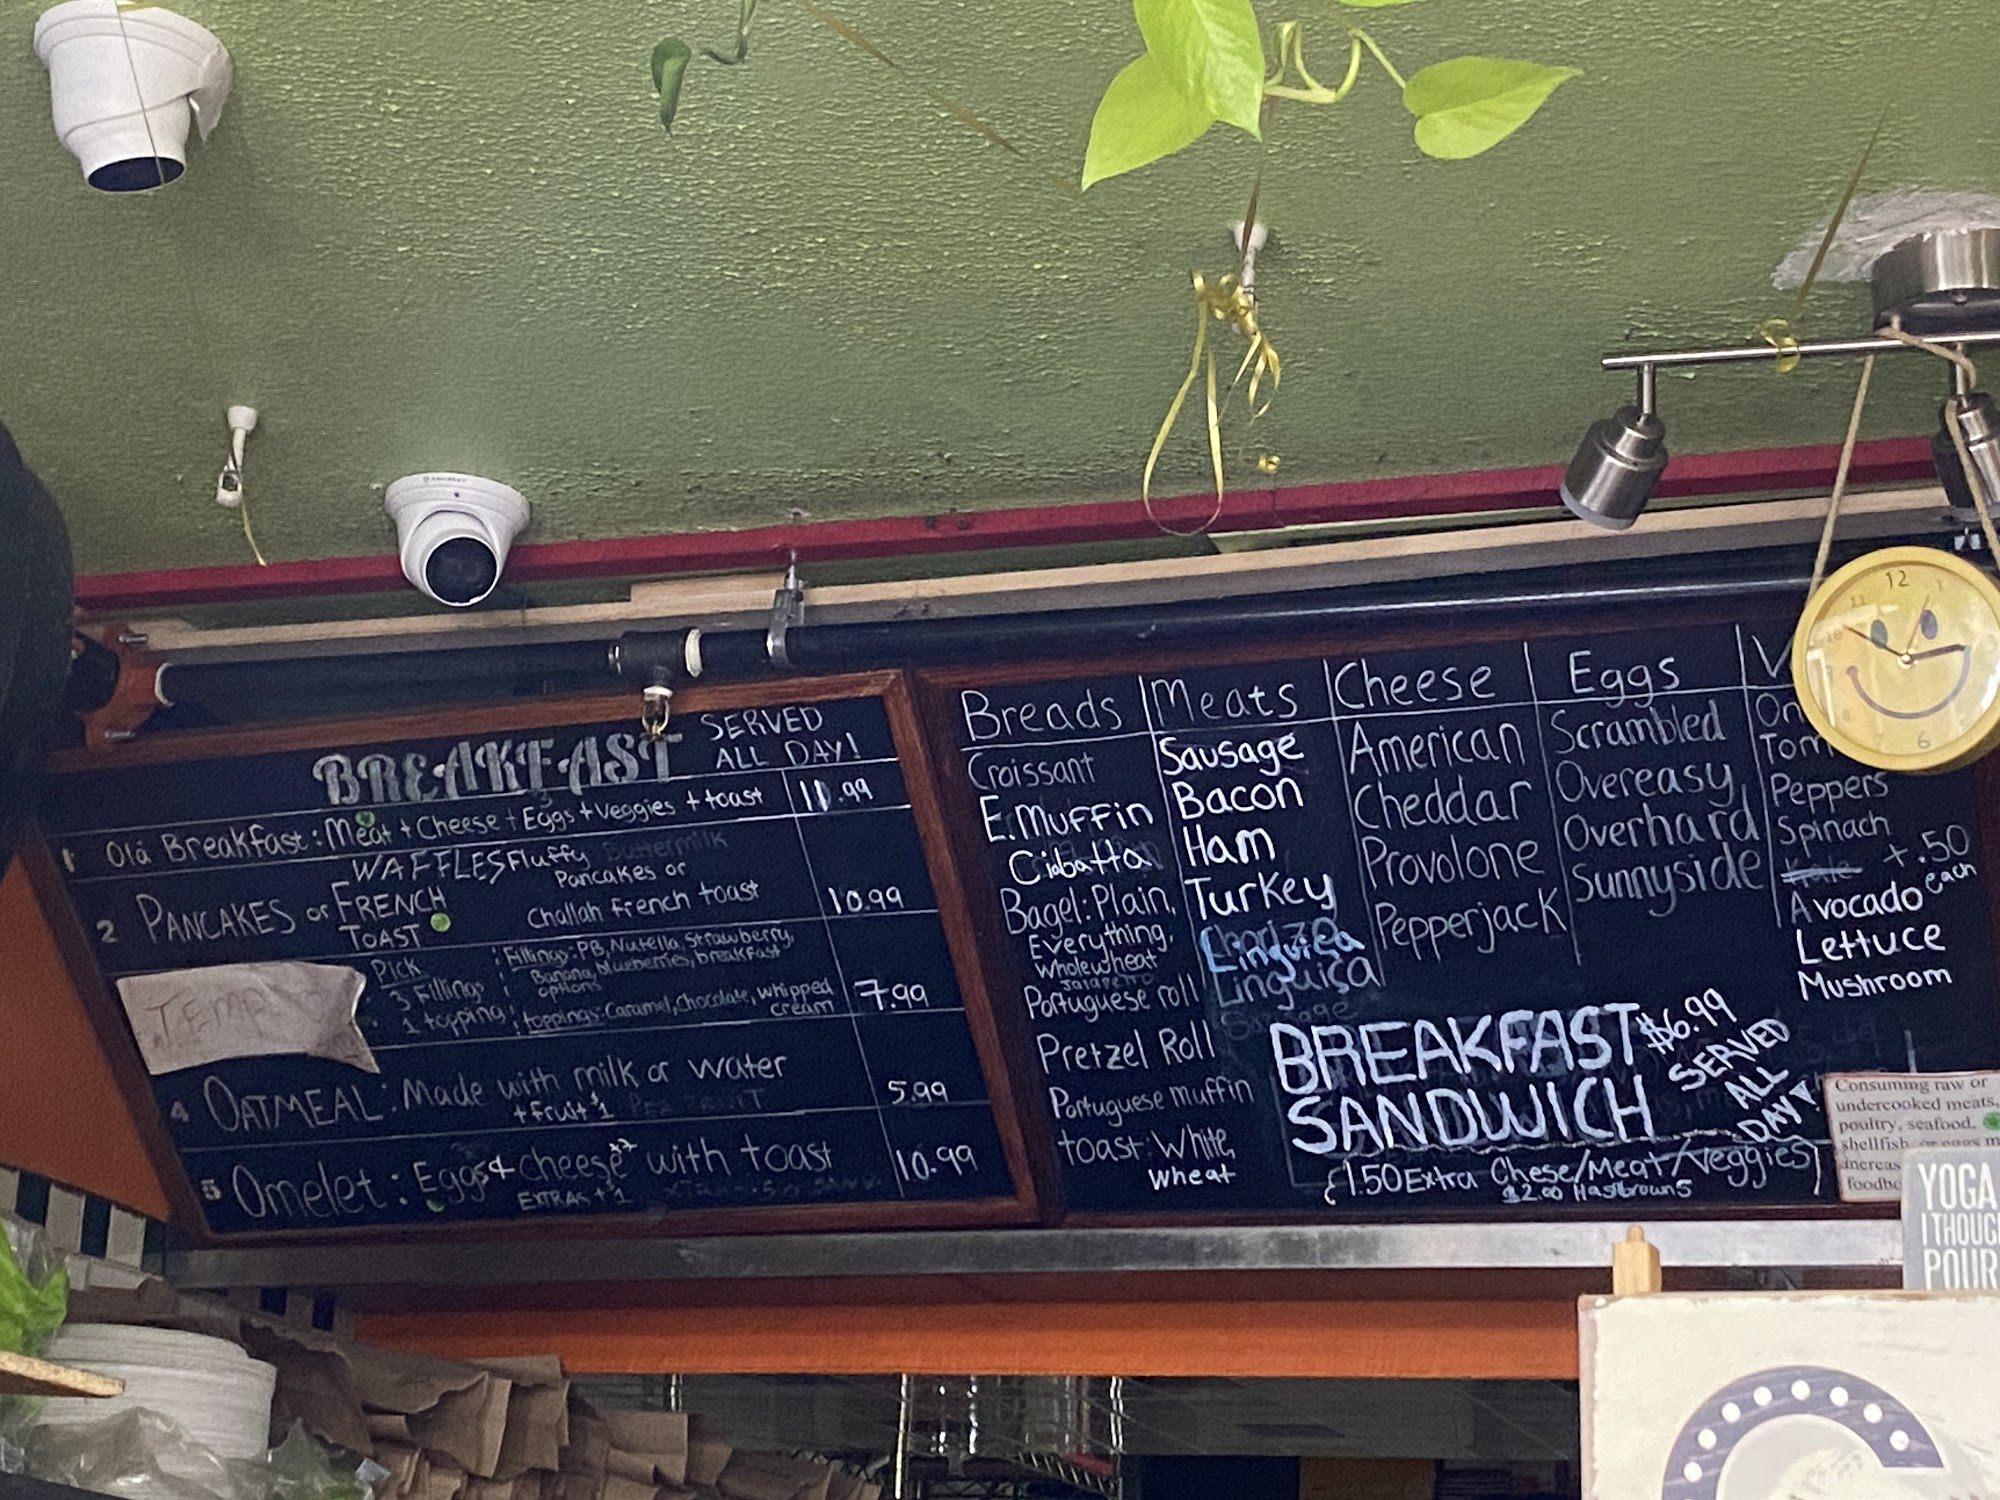 BREAKFAST SERVED
ALL DAY!
1 Olá Breakfast: Meat + Cheese + Eggs + Veggies + toast 11.99
WAFFLES Fluffy Buttermilk
Pancakes or
2 PANCAKES or FRENCH
TOAST
Challah french toast 10.99
Pick
3 Fillings
1 topping
Fillings: PB, Nutella, Strawberry,
Banana, blueberries, breakfast
options
toppings: Caramel, Chocolate, whipped
cream
7.99
4 OATMEAL: Made with milk or water 5.99
+ fruit $1
5 Omelet: Eggs & cheese with toast 10.99
EXTRAS + $1
Breads
Croissant
E. Muffin
Ciabatta
Bagel: Plain,
Everything,
Wholewheat
Jalapeño
Portuguese roll
Pretzel Roll
Portuguese muffin
toast: White,
wheat
Meats
Sausage
Bacon
Ham
Turkey
Linguica
Linguiça
Sausage
Cheese
American
Cheddar
Provolone
Pepperjack
Eggs
Scrambled
Overeasy
Overhard
Sunnyside
V
On
Tom
Peppers
Spinach
Kale
+.50
each
Avocado
Lettuce
Mushroom
BREAKFAST
SANDWICH
$6.99
SERVED
ALL
DAY
1.50 Extra Chese/Meat/Veggies
$2.00 Hasbrowns
12
6
Consuming raw or
undercooked meats,
poultry, seafood,
shellfish or eggs m
increas
foodbo
YOGA
I THOUG
POUR